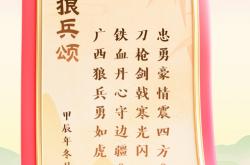 狼兵颂
广西狼兵勇如虎
铁血丹心守边疆
刀枪剑戟寒光闪
忠勇豪情震四方
甲辰年冬